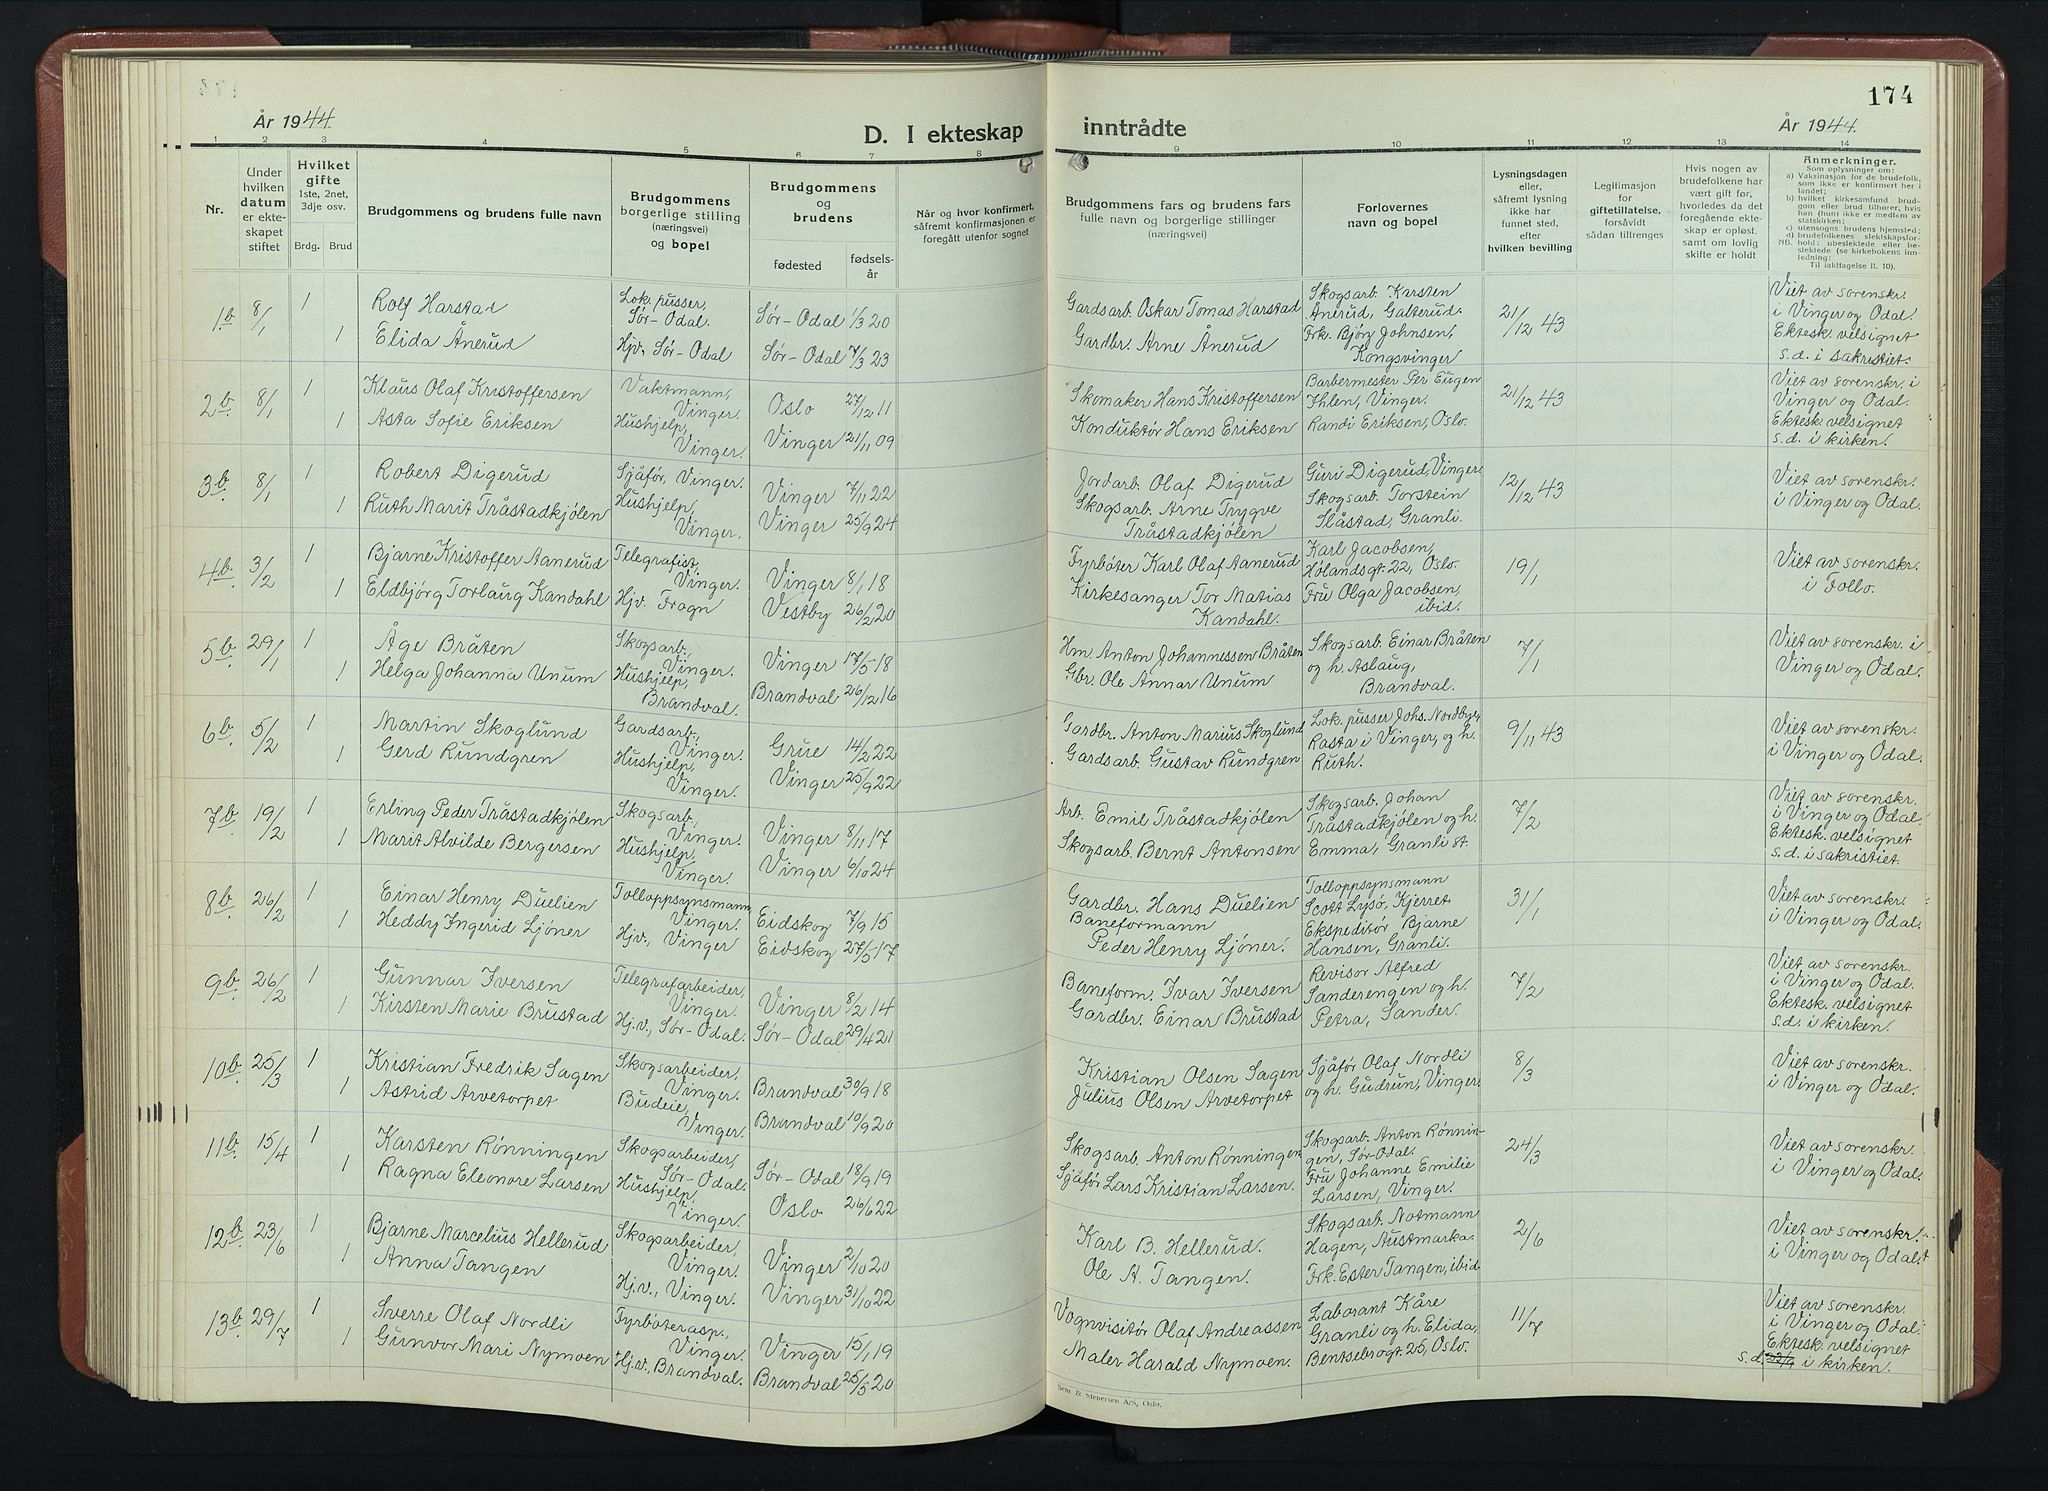 174
År 1944.
D. I ekteskap inntrådte
År 1944.
1 2 3 4 5 6 7 8 9 10 11 12 13 14
Nr.
Under hvilken datum er ekteskapet stiftet
Hvilket gifte
1ste, 2net, 3dje osv.
Brdg. Brud
Brudgommens og brudens fulle navn
Brudgommens borgerlige stilling (næringsvei) og bopel
Brudgommens og brudens
fødested
fødselsår
Når og hvor konfirmert, såfremt konfirmasjonen er foregått utenfor sognet
Brudgommens fars og brudens fars fulle navn og borgerlige stillinger (næringsvei)
Forlovernes navn og bopel
Lysningsdagen eller, såfremt lysning ikke har funnet sted, efter hvilken bevilling
Legitimasjon for giftetillatelse, forsåvidt sådan tiltrenges
Hvis nogen av brudefolkene har vært gift før, hvorledes da det foregående ekteskap er opløst, samt om lovlig skifte er holdt
Anmerkninger.
Som oplysninger om:
a) Vaksinasjon for de brudefolk, som ikke er konfirmert her i landet;
b) hvilket kirkesamfund brudgom eller brud tilhører, hvis han (hun) ikke er medlem av statskirken;
c) utensogns brudens hjemsted;
d) brudefolkenes slektskapsforhold: ubeslektede eller beslektede (se kirkebokens innledning:
NB. Til iakttagelse II. 10).
1b. 8/1 1 Rolf Harstad Lok. pusser, Sør-Odal. Sør-Odal 1/3 20 Gardsarb. Oskar Tomas Harstad Skogsarb. Karsten Ånerud, Galterud. 21/12 43 Viet av sorenskr. i Vinger og Odal.
1 Elida Ånerud Hjv. Sør-Odal Sør-Odal 7/3 23 Gardbr. Arne Ånerud Frk. Bjørg Johnsen, Kongsvinger Ektesk. velsignet s.d. i sakristiet.
2b. 8/1 1 Klaus Olaf Kristoffersen Vaktmann, Vinger. Oslo 27/12 11 Skomaker Hans Kristoffersen Barbermester Per Eugen Ihlen, Vinger. 21/12 43 Viet av sorenskr. i Vinger og Odal.
1 Asta Sofie Eriksen Hushjelp, Vinger. Vinger 21/11 09 Konduktør Hans Eriksen Randi Eriksen, Oslo. Ektesk. velsignet s.d. i kirken.
3b. 8/1 1 Robert Digerud Sjåfør, Vinger. Vinger 7/11 22 Jordarb. Olaf Digerud Guri Digerud, Vinger. 12/12 43 Viet av sorenskr. i Vinger og Odal.
1 Ruth Marit Tråstadkjølen Hushjelp, Vinger. Vinger 25/9 24 Skogsarb. Arne Trygve Tråstadkjølen Skogsarb. Torstein Slåstad, Granli.
4b. 3/2 1 Bjarne Kristoffer Aanerud Telegrafist, Vinger. Vinger 8/1 18 Fyrbøter Karl Olaf Aanerud Karl Jacobsen, Hølandsgt. 22, Oslo. 19/1 Viet av sorenskr. i Follo.
1 Eldbjørg Torlaug Kandahl Hjv. Frogn Vestby 26/2 20 Kirkesanger Tor Matias Kandahl. Fru Olga Jacobsen, ibid.
5b. 29/1 1 Åge Bråten Skogsarb., Vinger. Vinger 17/5 18 Hm. Anton Johannessen Bråten Skogsarb. Einar Bråten og h. Aslaug, Brandval. 7/1 Viet av sorenskr. i Vinger og Odal.
1 Helga Johanna Unum Hushjelp, Brandval. Brandval 26/12 16 Gbr. Ole Annar Unum
6b. 5/2 1 Martin Skoglund Gardsarb., Vinger. Grue 14/2 22 Gardbr. Anton Marius Skoglund Lok. pusser Johs. Nordbye, Rasta i Vinger, og h. Ruth. 9/11 43 Viet av sorenskr. i Vinger og Odal.
1 Gerd Rundgren Hushjelp, Vinger. Vinger 25/9 22 Gardsarb. Gustav Rundgren
7b. 19/2 1 Erling Peder Tråstadkjølen Skogsarb., Vinger. Vinger 8/11 17 Arb. Emil Tråstadkjølen Skogsarb. Johan Tråstadkjølen og h. Emma, Granli st. 7/2 Viet av sorenskr. i Vinger og Odal.
1 Marit Alvilde Bergersen Hushjelp, Vinger. Vinger 6/10 24 Skogsarb. Bernt Antonsen Ektesk. velsignet s.d. i sakristiet.
8b. 26/2 1 Einar Henry Duelien Tolloppsynsmann, Vinger. Eidskog 7/9 15 Gardbr. Hans Duelien Tolloppsynsmann Scott Lysø, Kjerret. 31/1 Viet av sorenskr. i Vinger og Odal.
1 Heddy Ingerid Ljøner Hjv., Vinger Eidskog 27/5 17 Baneformann Peder Henry Ljøner. Ekspeditør Bjarne Hansen, Granli.
9b. 26/2 1 Gunnar Iversen Telegrafarbeider, Vinger. Vinger 8/2 14 Baneform. Ivar Iversen Revisor Alfred Sanderengen og h. Petra, Sander. 7/2 Viet av sorenskr. i Vinger og Odal.
1 Kirsten Marie Brustad Hj.v., Sør-Odal. Sør-Odal 29/4 21 Gardbr. Einar Brustad Ektesk. velsignet s.d. i kirken.
10b. 25/3 1 Kristian Fredrik Sagen Skogsarbeider, Vinger. Brandval 30/9 18 Kristian Olsen Sagen Sjåfør Olaf Nordli og h. Gudrun, Vinger. 8/3 Viet av sorenskr. i Vinger og Odal.
1 Astrid Arvetorpet Budeie, Vinger. Brandval 10/9 20 Julius Olsen Arvetorpet
11b. 15/4 1 Karsten Rønningen Skogsarbeider, Sør-Odal. Sør-Odal 18/9 19 Skogsarb. Anton Rønningen Skogsarb. Anton Rønningen, Sør-Odal. 24/3 Viet av sorenskr. i Vinger og Odal.
1 Ragna Eleonore Larsen Hushjelp, Vinger. Oslo 26/6 22 Sjåfør Lars Kristian Larsen. Fru Johanne Emilie Larsen, Vinger.
12b. 23/6 1 Bjarne Marcelius Hellerud Skogsarbeider, Vinger. Vinger 2/10 20 Karl B. Hellerud. Skogsarb. Notmann Hagen, Austmarka. 2/6 Viet av sorenskr. i Vinger og Odal.
1 Anna Tangen Hj.v., Vinger. Vinger 31/10 22 Ole A. Tangen. Frk. Ester Tangen, ibid.
13b. 29/7 1 Sverre Olaf Nordli Fyrbøterasp., Vinger. Vinger 15/1 19 Vognvisitør Olaf Andreassen Laborant Kåre Granli og h. Elida, Bentsebrogt. 25, Oslo. 11/7 Viet av sorenskr. i Vinger og Odal.
1 Gunvor Mari Nymoen Hj.v., Brandval. Brandval 25/5 20 Maler Harald Nymoen. Ektesk. velsignet s.d. i kirken.
Sem & Stenersen A/S, Oslo.